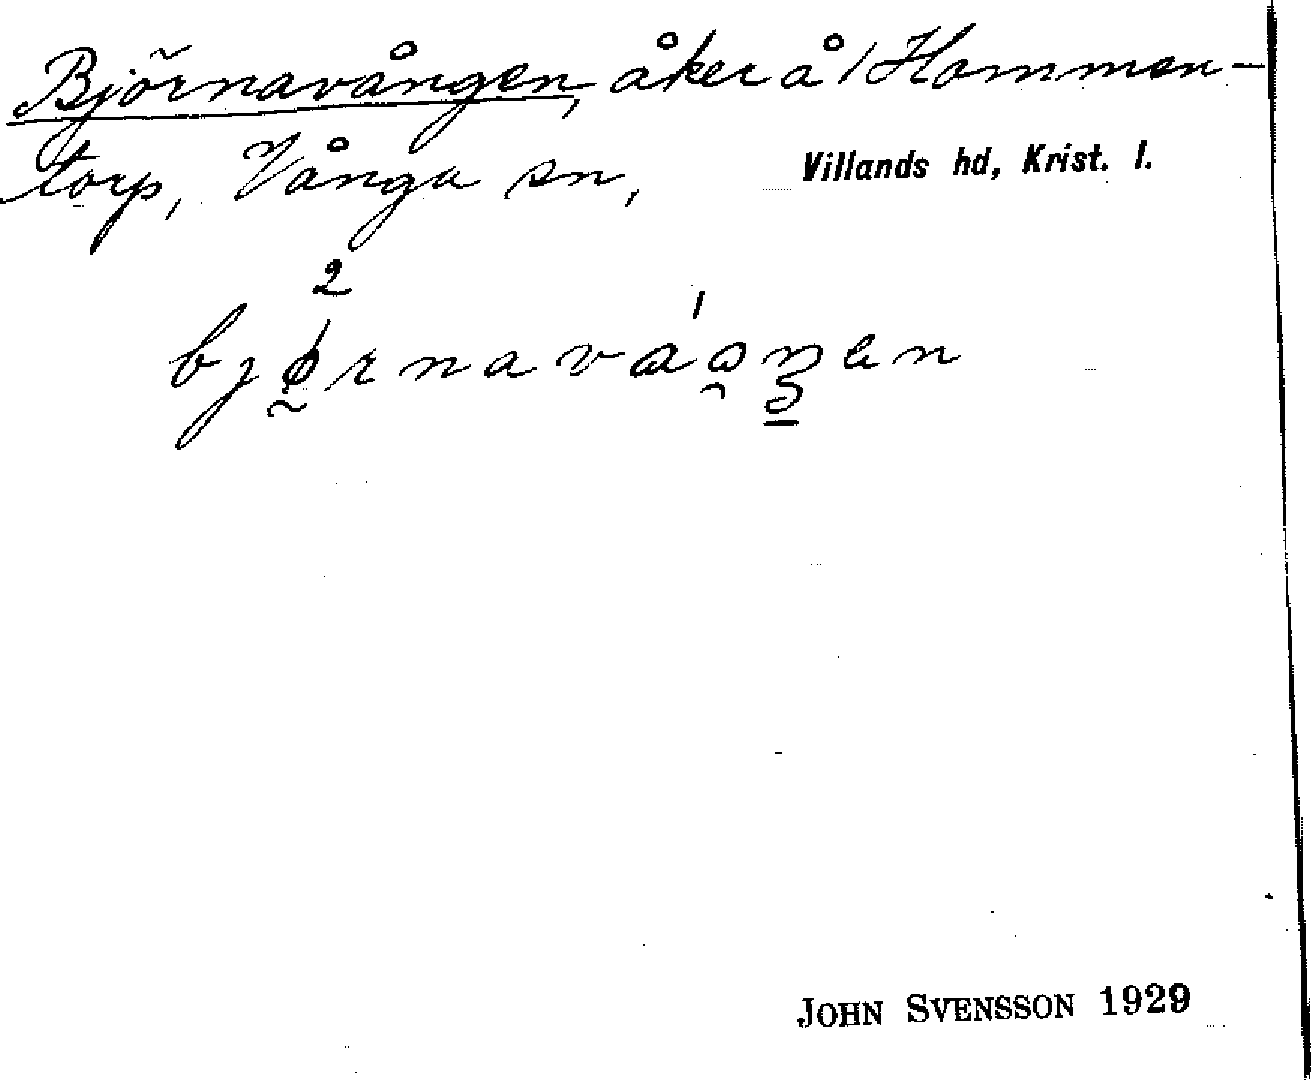 Björnavången, åker å Hommen-
torp, Vånga sn, Villands hd, Krist. l.
2 1
bjørnavaaŋen
JOHN SVENSSON 1929